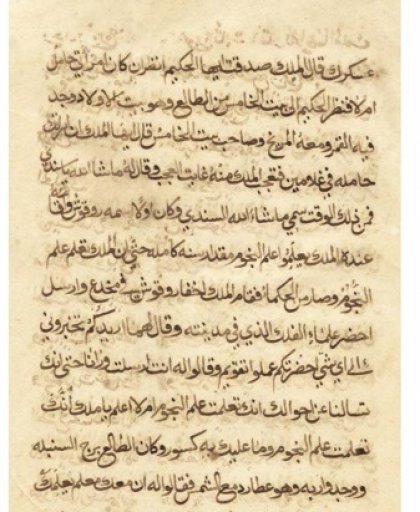 عسكرك قال الملك صدقت ايها الحكيم انظر ان كان امراتي حامل
ام لا فنظر الحكيم الى بيت الخامس من الطالع وهو بيت الاولاد وجد
فيه القمر ومعه المريخ وصاحب بيت الخامس قال ايها الملك ان امراتك
حامله في غلامين فتعجب الملك منه غايت العجب وقال له ماشا الله يا سندي
فمن ذلك الوقت سمي ماشاء الله السندي وكان اولا اسمه روفوش وقف
عنده الملك يعلموا علم النجوم مقدار سنه كامله حتى ان الملك تعلم علم
النجوم وصار من الحكما فقام الملك اخفا روفوش في مخدع وارسل
احضر علماء الفلك الذي في مدينته وقال لهما اريدكم تخبروني
لاي شي احضرتكم عملوا تقويم وقالوا له انت ارسلت ورانا حتى انك
تسالنا عن احوالك انك تعلمت علم النجوم ام لا اعلم يا ملك أنّك
تعلمت علم النجوم وما عليك به كسور وكان الطالع برج السنبله
ووجدوا ربه وهو عطارد مع الشمس فقالوا له ان معك معلم يعلمك